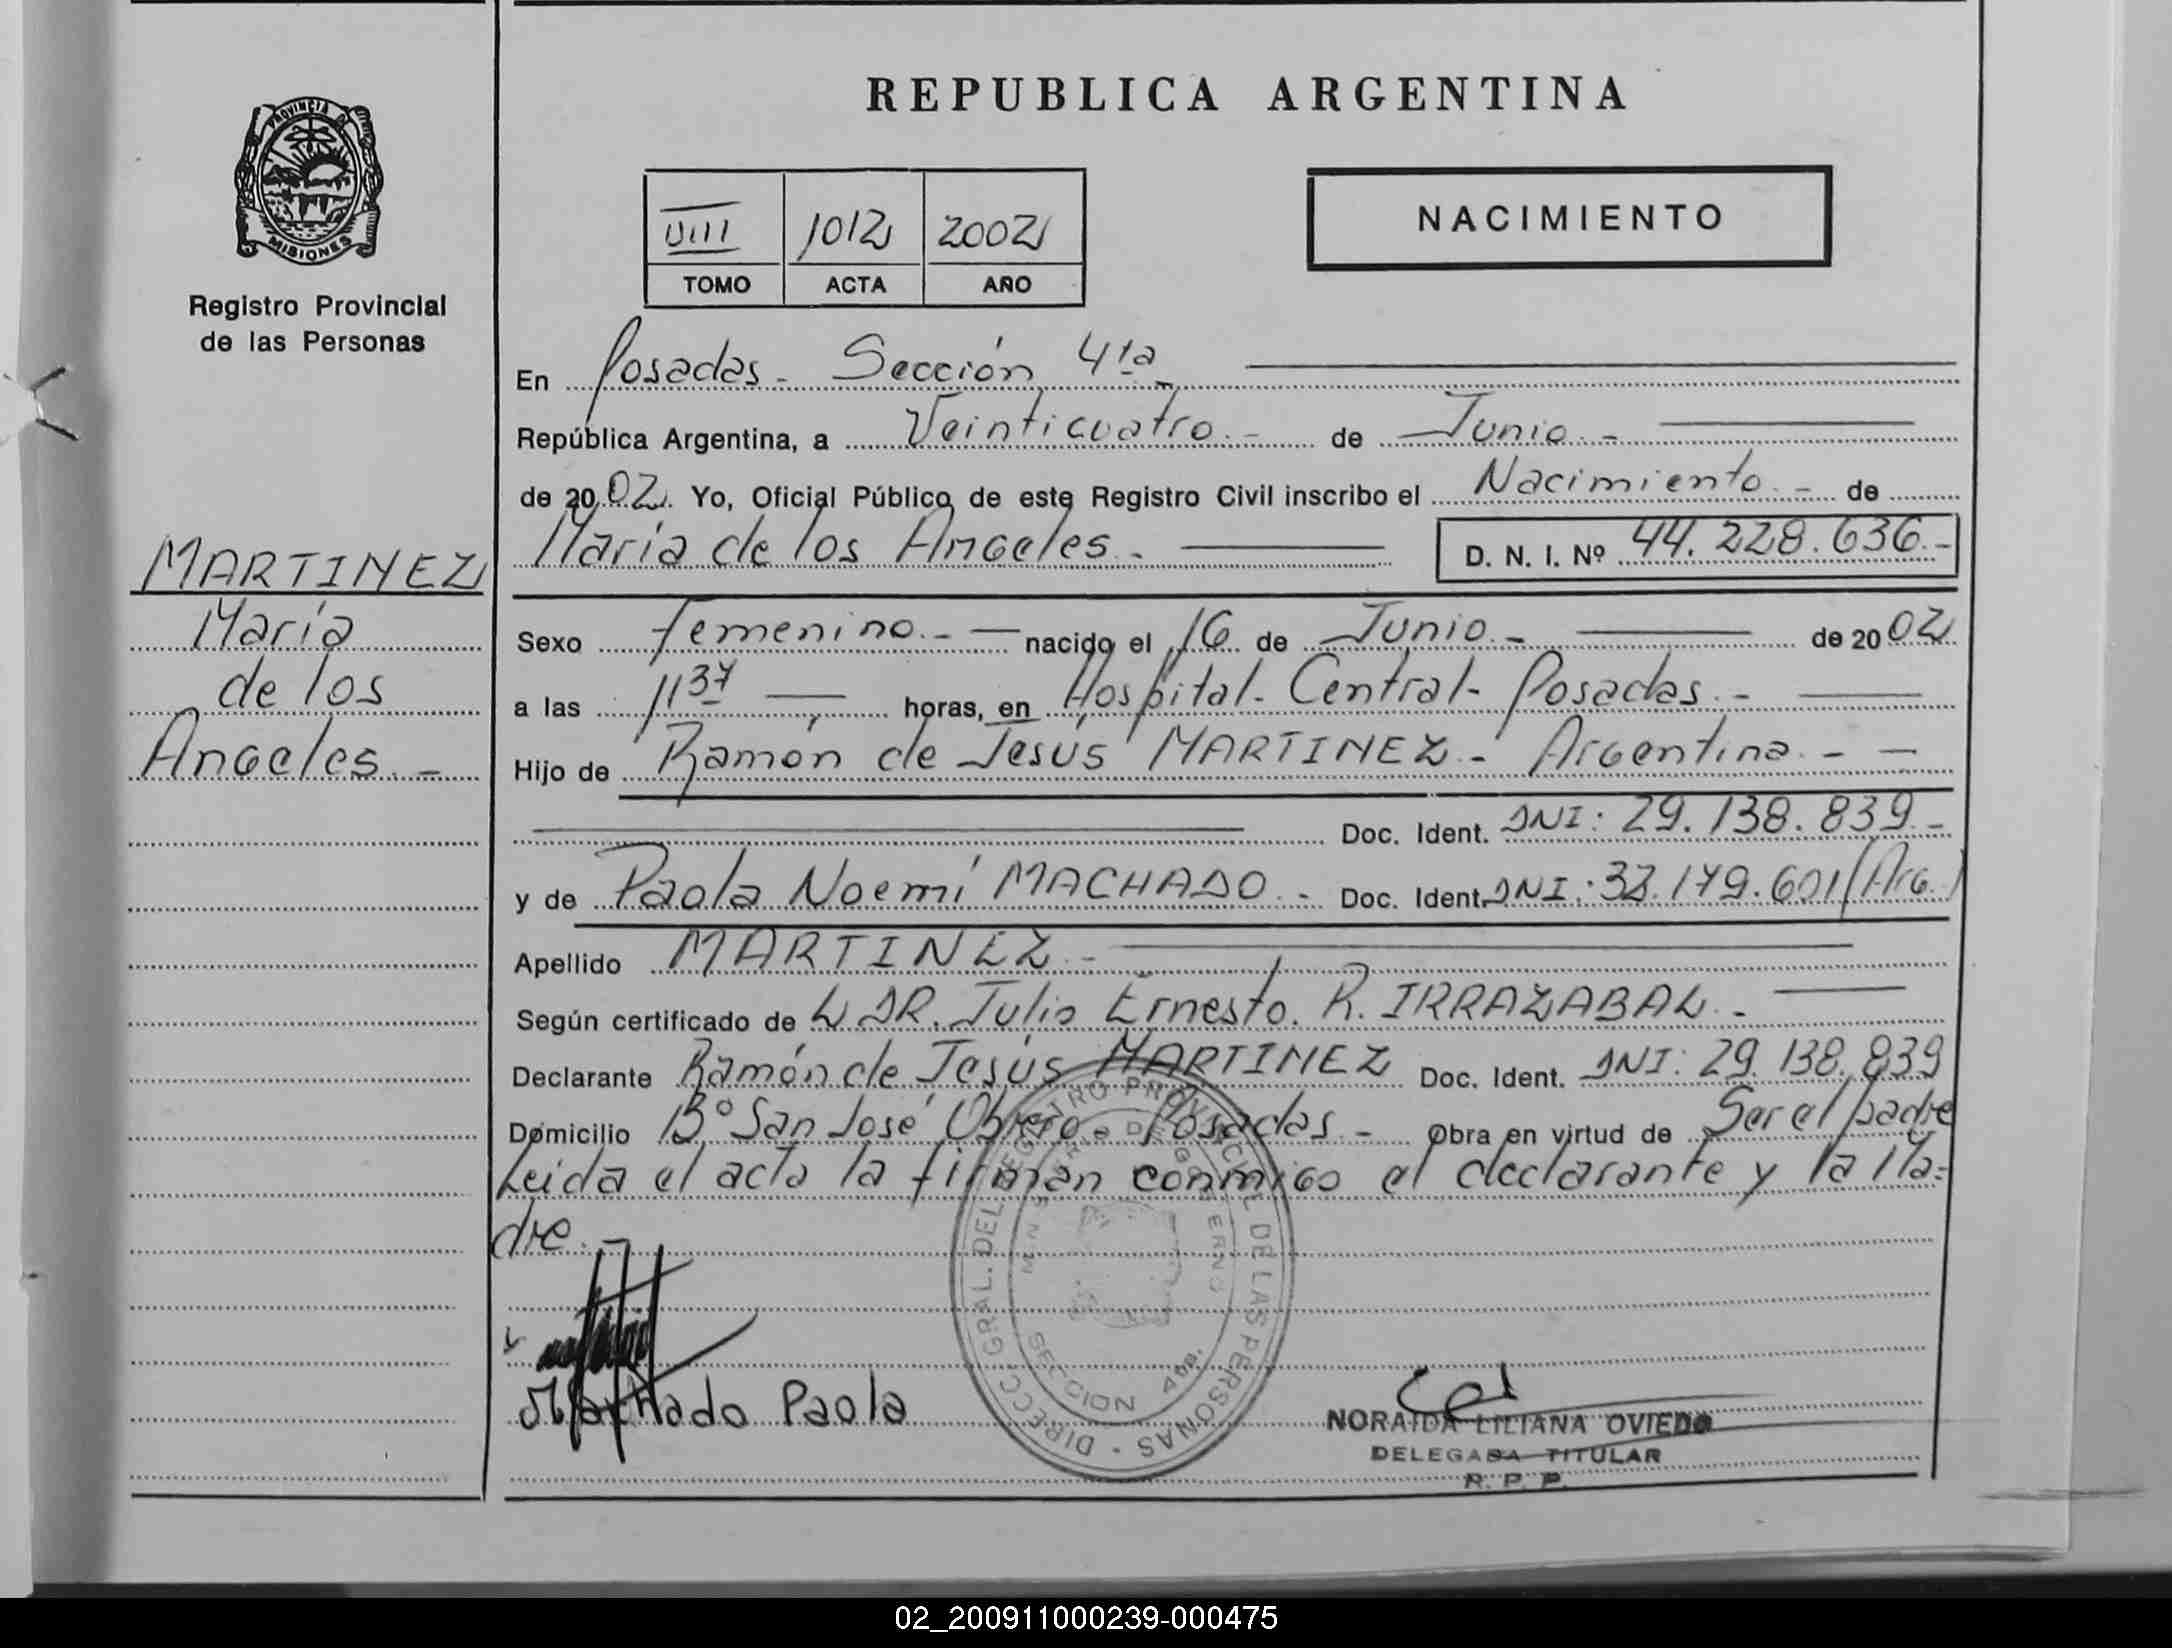 REPUBLICA ARGENTINA
PROVINCIA DE
MISIONES
Registro Provincial
de las Personas
VIII 1012 2002
TOMO ACTA AÑO
NACIMIENTO
MARTINEZ
María
de los
Angeles.-
En Posadas - Sección 4ta
República Argentina, a Veinticuatro.- de Junio.-
de 2002. Yo, Oficial Público de este Registro Civil inscribo el Nacimiento.- de
María de los Angeles.- D. N. I. Nº 44.228.636.-
Sexo femenino.- nacido el 16 de Junio.- de 2002
a las 11 37 horas, en Hospital Central - Posadas.-
Hijo de Ramón de Jesús MARTINEZ.- Argentina.-
Doc. Ident. DNI: 29.138.839.-
y de Paola Noemí MACHADO.- Doc. Ident. DNI: 33.179.601 (Arg.)
Apellido MARTINEZ.-
Según certificado de DR. Julio Ernesto. R. IRRAZABAL.-
Declarante Ramón de Jesús MARTINEZ Doc. Ident. DNI: 29.138.839
Domicilio Bº San José Obrero - Posadas.- Obra en virtud de Ser el padre
Leida el acta la firman conmigo el declarante y la Ma-
dre.-
Machado Paola
DIRECC. GRAL. DEL REGISTRO PROVINCIAL DE LAS PERSONAS
MINISTERIO DE GOBIERNO
SECCION 4ta.
NORAIDA LILIANA OVIEDO
DELEGADA TITULAR
R. P. P.
02_200911000239-000475